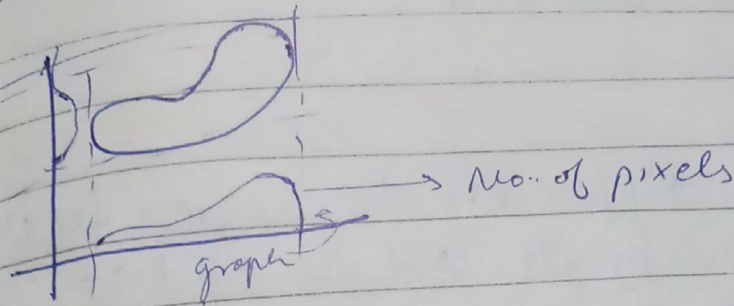 No. of pixels
graph